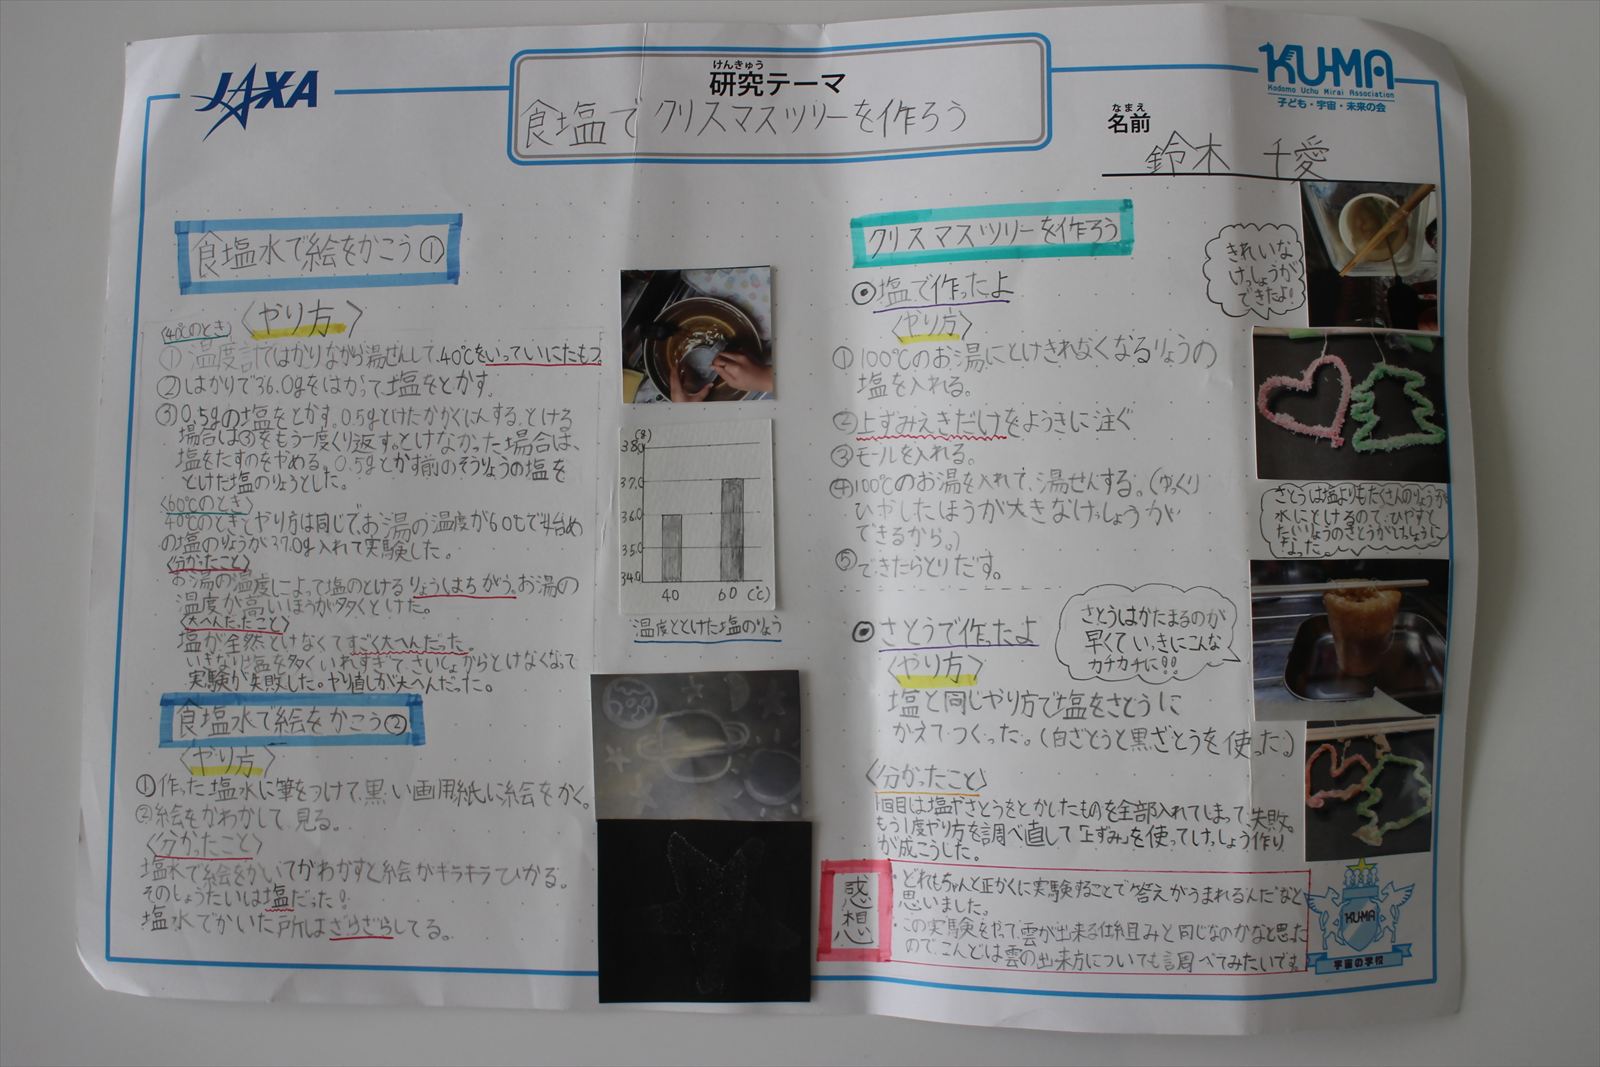 JAXA
けんきゅう
研究テーマ
食塩でクリスマスツリーを作ろう
KU-MA
Kodomo Uchu Mirai Association
子ども・宇宙・未来の会
なまえ
名前
鈴木 千愛
食塩水で絵をかこう①
〈やり方〉
〈40℃のとき〉
①温度計ではかりながら湯せんして、40℃をいっていにたもつ。
②はかりで36.0gをはかって塩をとかす。
③0.5gの塩をとかす。0.5gとけたかかくにんする。とける
場合は③をもう一度くり返す。とけなかった場合は、
塩をたすのをやめる。0.5gとかす前のそうりょうの塩を
とけた塩のりょうとした。
〈60℃のとき〉
40℃のときとやり方は同じで、お湯の温度が60℃で始め
の塩のりょうが37.0g入れて実験した。
〈分かったこと〉
お湯の温度によって塩のとけるりょうはちがう。お湯の
温度が高いほうが多くとけた。
〈大へんだったこと〉
塩が全然とけなくてすごく大へんだった。
いきなり塩を多くいれすぎて、さいしょからとけなくなって
実験が失敗した。やり直しが大へんだった。
食塩水で絵をかこう②
〈やり方〉
①作った塩水に筆をつけて、黒い画用紙に絵をかく。
②絵をかわかして、見る。
〈分かったこと〉
塩水で絵をかいてかわかすと絵がキラキラひかる。
そのしょうたいは塩だった!
塩水でかいた所はざらざらしてる。
(g)
38.0
37.0
36.0
35.0
34.0
40 60 (℃)
温度ととけた塩のりょう
クリスマスツリーを作ろう
◎塩で作ったよ
〈やり方〉
①100℃のお湯にとけきれなくなるりょうの
塩を入れる。
②上ずみえきだけをようきに注ぐ
③モールを入れる。
④100℃のお湯を入れて、湯せんする。(ゆっくり
ひやしたほうが大きなけっしょうが
できるから。)
⑤できたらとりだす。
きれいな
けっしょうが
できたよ!
さとうは塩よりもたくさんのりょうが
水にとけるので、ひやすと
たいりょうのさとうがけっしょうに
なった。
◎さとうで作ったよ
〈やり方〉
さとうはかたまるのが
早くていっきにこんな
カチカチに!!
塩と同じやり方で塩をさとうに
かえてつくった。(白ざとうと黒ざとうを使った)
〈分かったこと〉
1回目は塩やさとうをとかしたものを全部入れてしまって、失敗。
もう1度やり方を調べ直して「上ずみ」を使ってけっしょう作り
が成こうした。
感想
・どれもちゃんと正かくに実験することで答えがうまれるんだなと
思いました。
・この実験をやって、雲が出来る仕組みと同じなのかなと思った
ので、こんどは雲の出来方についても調べてみたいです。
KU-MA
宇宙の学校